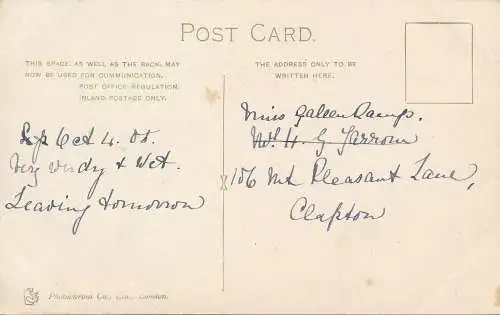 POST CARD.
THIS SPACE, AS WELL AS THE BACK, MAY
NOW BE USED FOR COMMUNICATION.
POST OFFICE REGULATION.
INLAND POSTAGE ONLY.
THE ADDRESS ONLY TO BE
WRITTEN HERE.
Oct 4. 05.
Very windy & Wet.
Leaving tomorrow
Miss
106 Mt Pleasant Lane,
Clapton
Photochrom Co., Ltd., London.